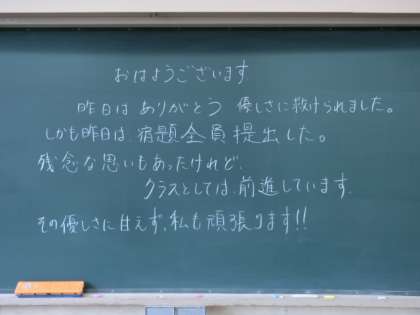 おはようございます
昨日は ありがとう 優しさに救けられました。
しかも昨日は、宿題全員提出した。
残念な思いもあったけれど、
クラスとしては、前進しています。
その優しさに甘えず、私も頑張ります!!